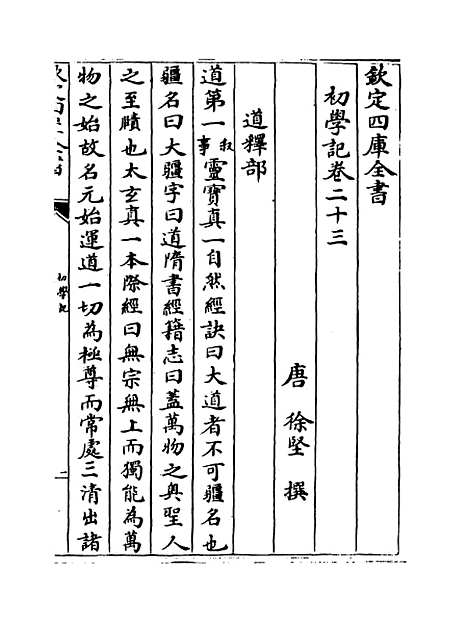 欽定四庫全書
初學記卷二十三
唐 徐堅 撰
道釋部
道第一 叙事 靈寶真一自然經訣曰大道者不可疆名也
疆名曰大疆字曰道隋書經籍志曰蓋萬物之奥聖人
之至賾也太玄真一本際經曰無宗無上而獨能為萬
物之始故名元始運道一切為極尊而常處三清出諸
初學記